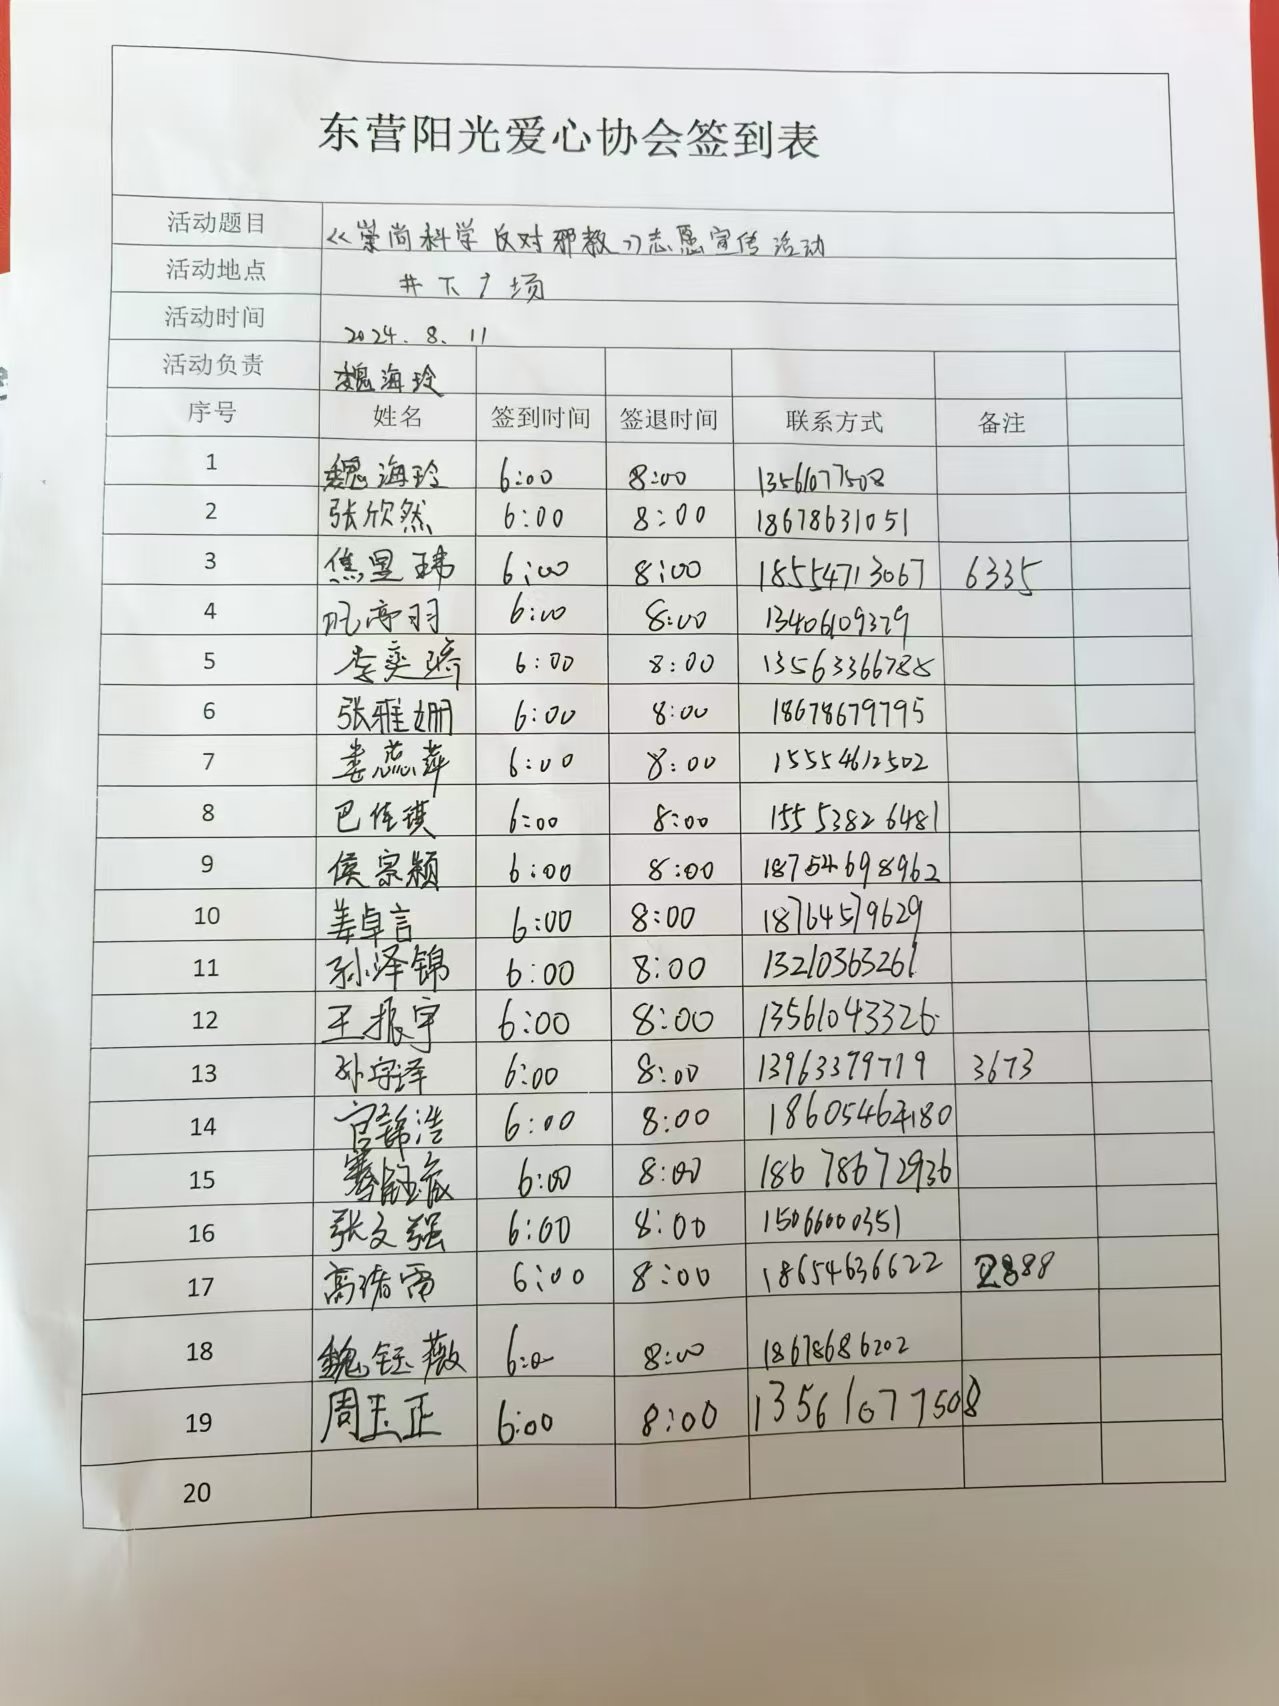 东营阳光爱心协会签到表
活动题目 《崇尚科学 反对邪教》志愿宣传活动
活动地点 井下广场
活动时间 2024.8.11
活动负责 魏海玲
序号 姓名 签到时间 签退时间 联系方式 备注
1 魏海玲 6:00 8:00 13561077508
2 张欣然 6:00 8:00 18678631051
3 焦昱玮 6:00 8:00 18554713067 6335
4 高羽 6:00 8:00 13406109379
5 李奕 6:00 8:00 13563366788
6 张雅姗 6:00 8:00 18678679795
7 娄蕊萍 6:00 8:00 15554612502
8 巴佳琪 6:00 8:00 15553826481
9 侯宗颖 6:00 8:00 18754698962
10 姜卓言 6:00 8:00 18764579629
11 孙泽锦 6:00 8:00 13210363261
12 王振宇 6:00 8:00 13561043326
13 孙宇泽 6:00 8:00 13963379719 3673
14 宫锦浩 6:00 8:00
15 6:00 8:00 18678672936
16 张文强 6:00 8:00 15066000351
17 高绪雷 6:00 8:00 18654636622 2888
18 魏钰薇 6:00 8:00 18678686202
19 周玉正 6:00 8:00 13561077508
20